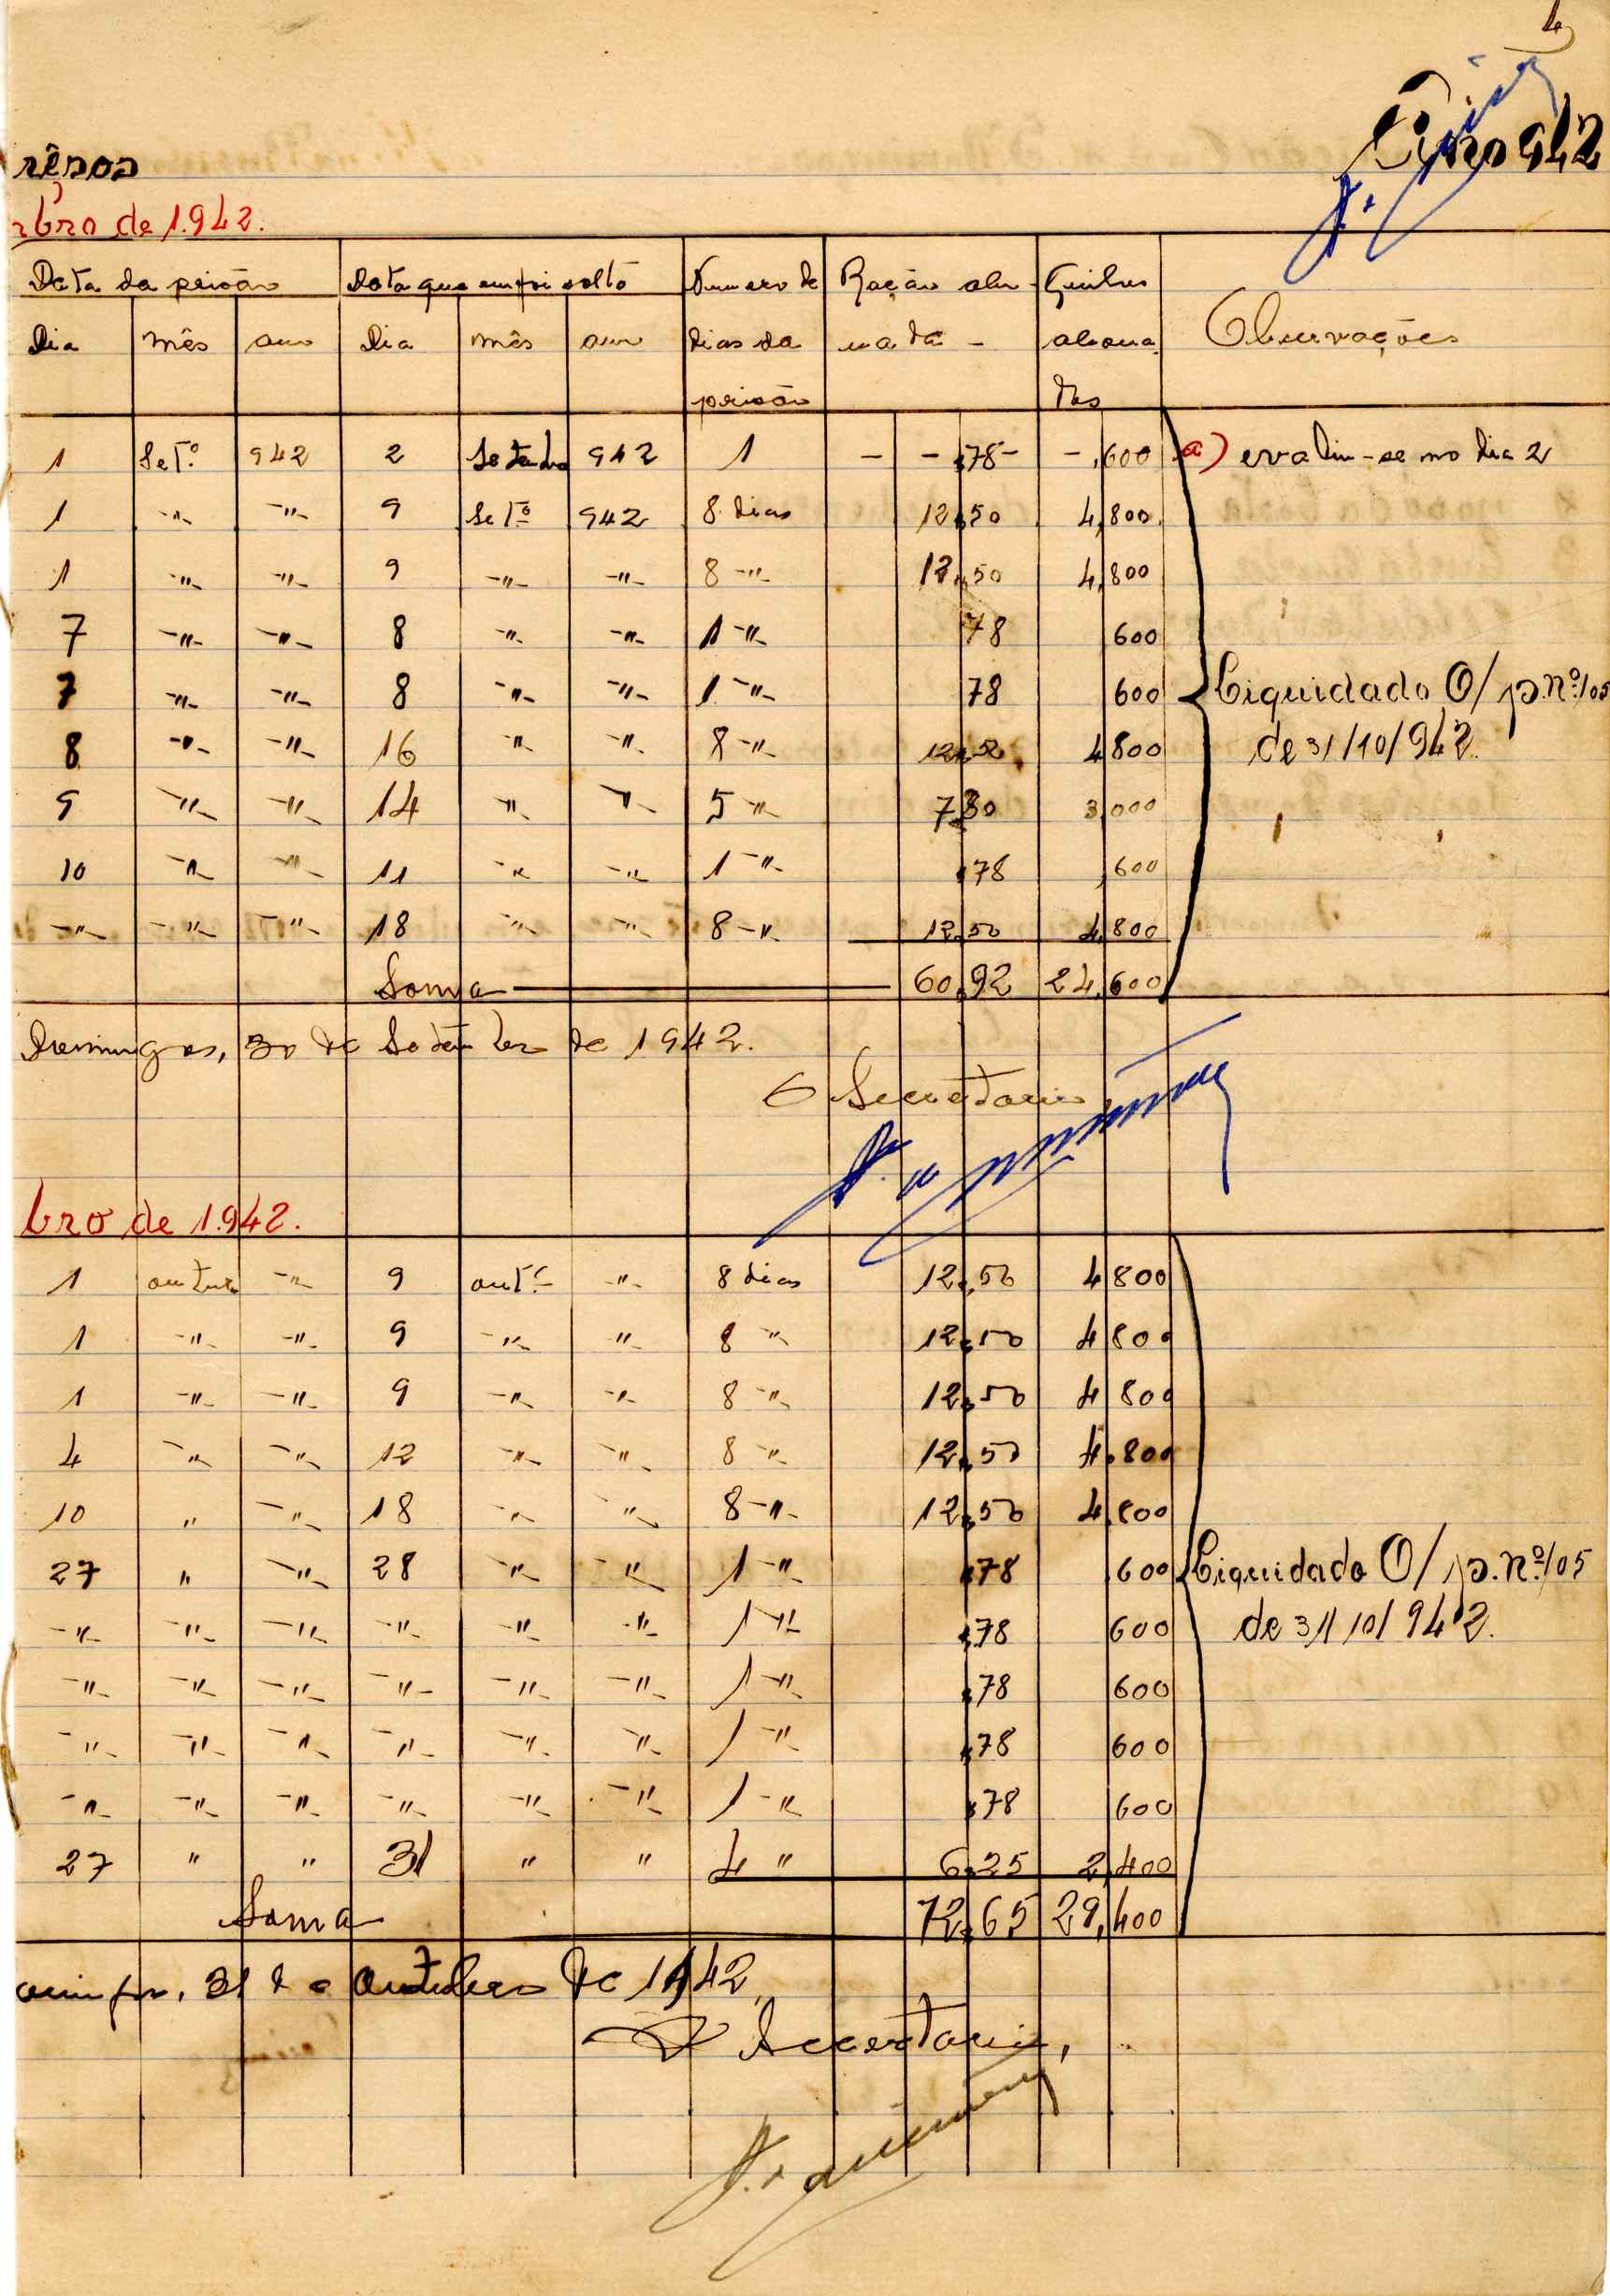 4
Ano 942
rêsos
bro de 1.942.
Data da prisão Data que em foi solto Numero de Ração abo- Quilos
Dia mês ano Dia mês ano dias da nada - abona Observações
prisão dos
1 Setº 942 2 Setembro 942 1 - - ,78 - - ,600 a) evadiu-se no dia 2
1 -"- -"- 9 Setº 942 8 dias 12,50 4,800
1 -"- -"- 9 -"- -"- 8 -"- 12,50 4,800
7 -"- -"- 8 -"- -"- 1 -"- 78 600
7 -"- -"- 8 -"- -"- 1 -"- 78 600 Liquidado O/ p. nº 105
8 -"- -"- 16 -"- -"- 8 -"- 12,50 4800 de 31/10/942.
9 -"- -"- 14 -"- -"- 5 -"- 7,80 3,000
10 -"- -"- 11 -"- -"- 1 -"- ,78 ,600
-"- -"- -"- 18 -"- -"- 8 -"- 12,50 4,800
Soma 60,92 24,600
30 de Setembro de 1942.
O Secretario
bro de 1.942.
1 outubro -"- 9 outº -"- 8 dias 12,50 4800
1 -"- -"- 9 -"- " 8 -"- 12,50 4800
1 -"- -"- 9 -"- -"- 8 -"- 12,50 4800
4 -"- -"- 12 -"- -"- 8 -"- 12,50 4,800
10 " -"- 18 -"- -"- 8 -"- 12,50 4,800
27 " -"- 28 -"- -"- 1 -"- ,78 ,600 Liquidado O/ p. nº 105
-"- -"- -"- -"- -"- -"- 1 -"- ,78 600 de 31/10/942.
-"- -"- -"- -"- -"- -"- 1 -"- ,78 600
-"- -"- -"- -"- -"- -"- 1 -"- ,78 600
-"- -"- -"- -"- -"- -"- 1 -"- ,78 600
27 " " 31 " " 4 " 6,25 2,400
Soma 72,65 29,400
31 de Outubro de 1942,
O Secretario,